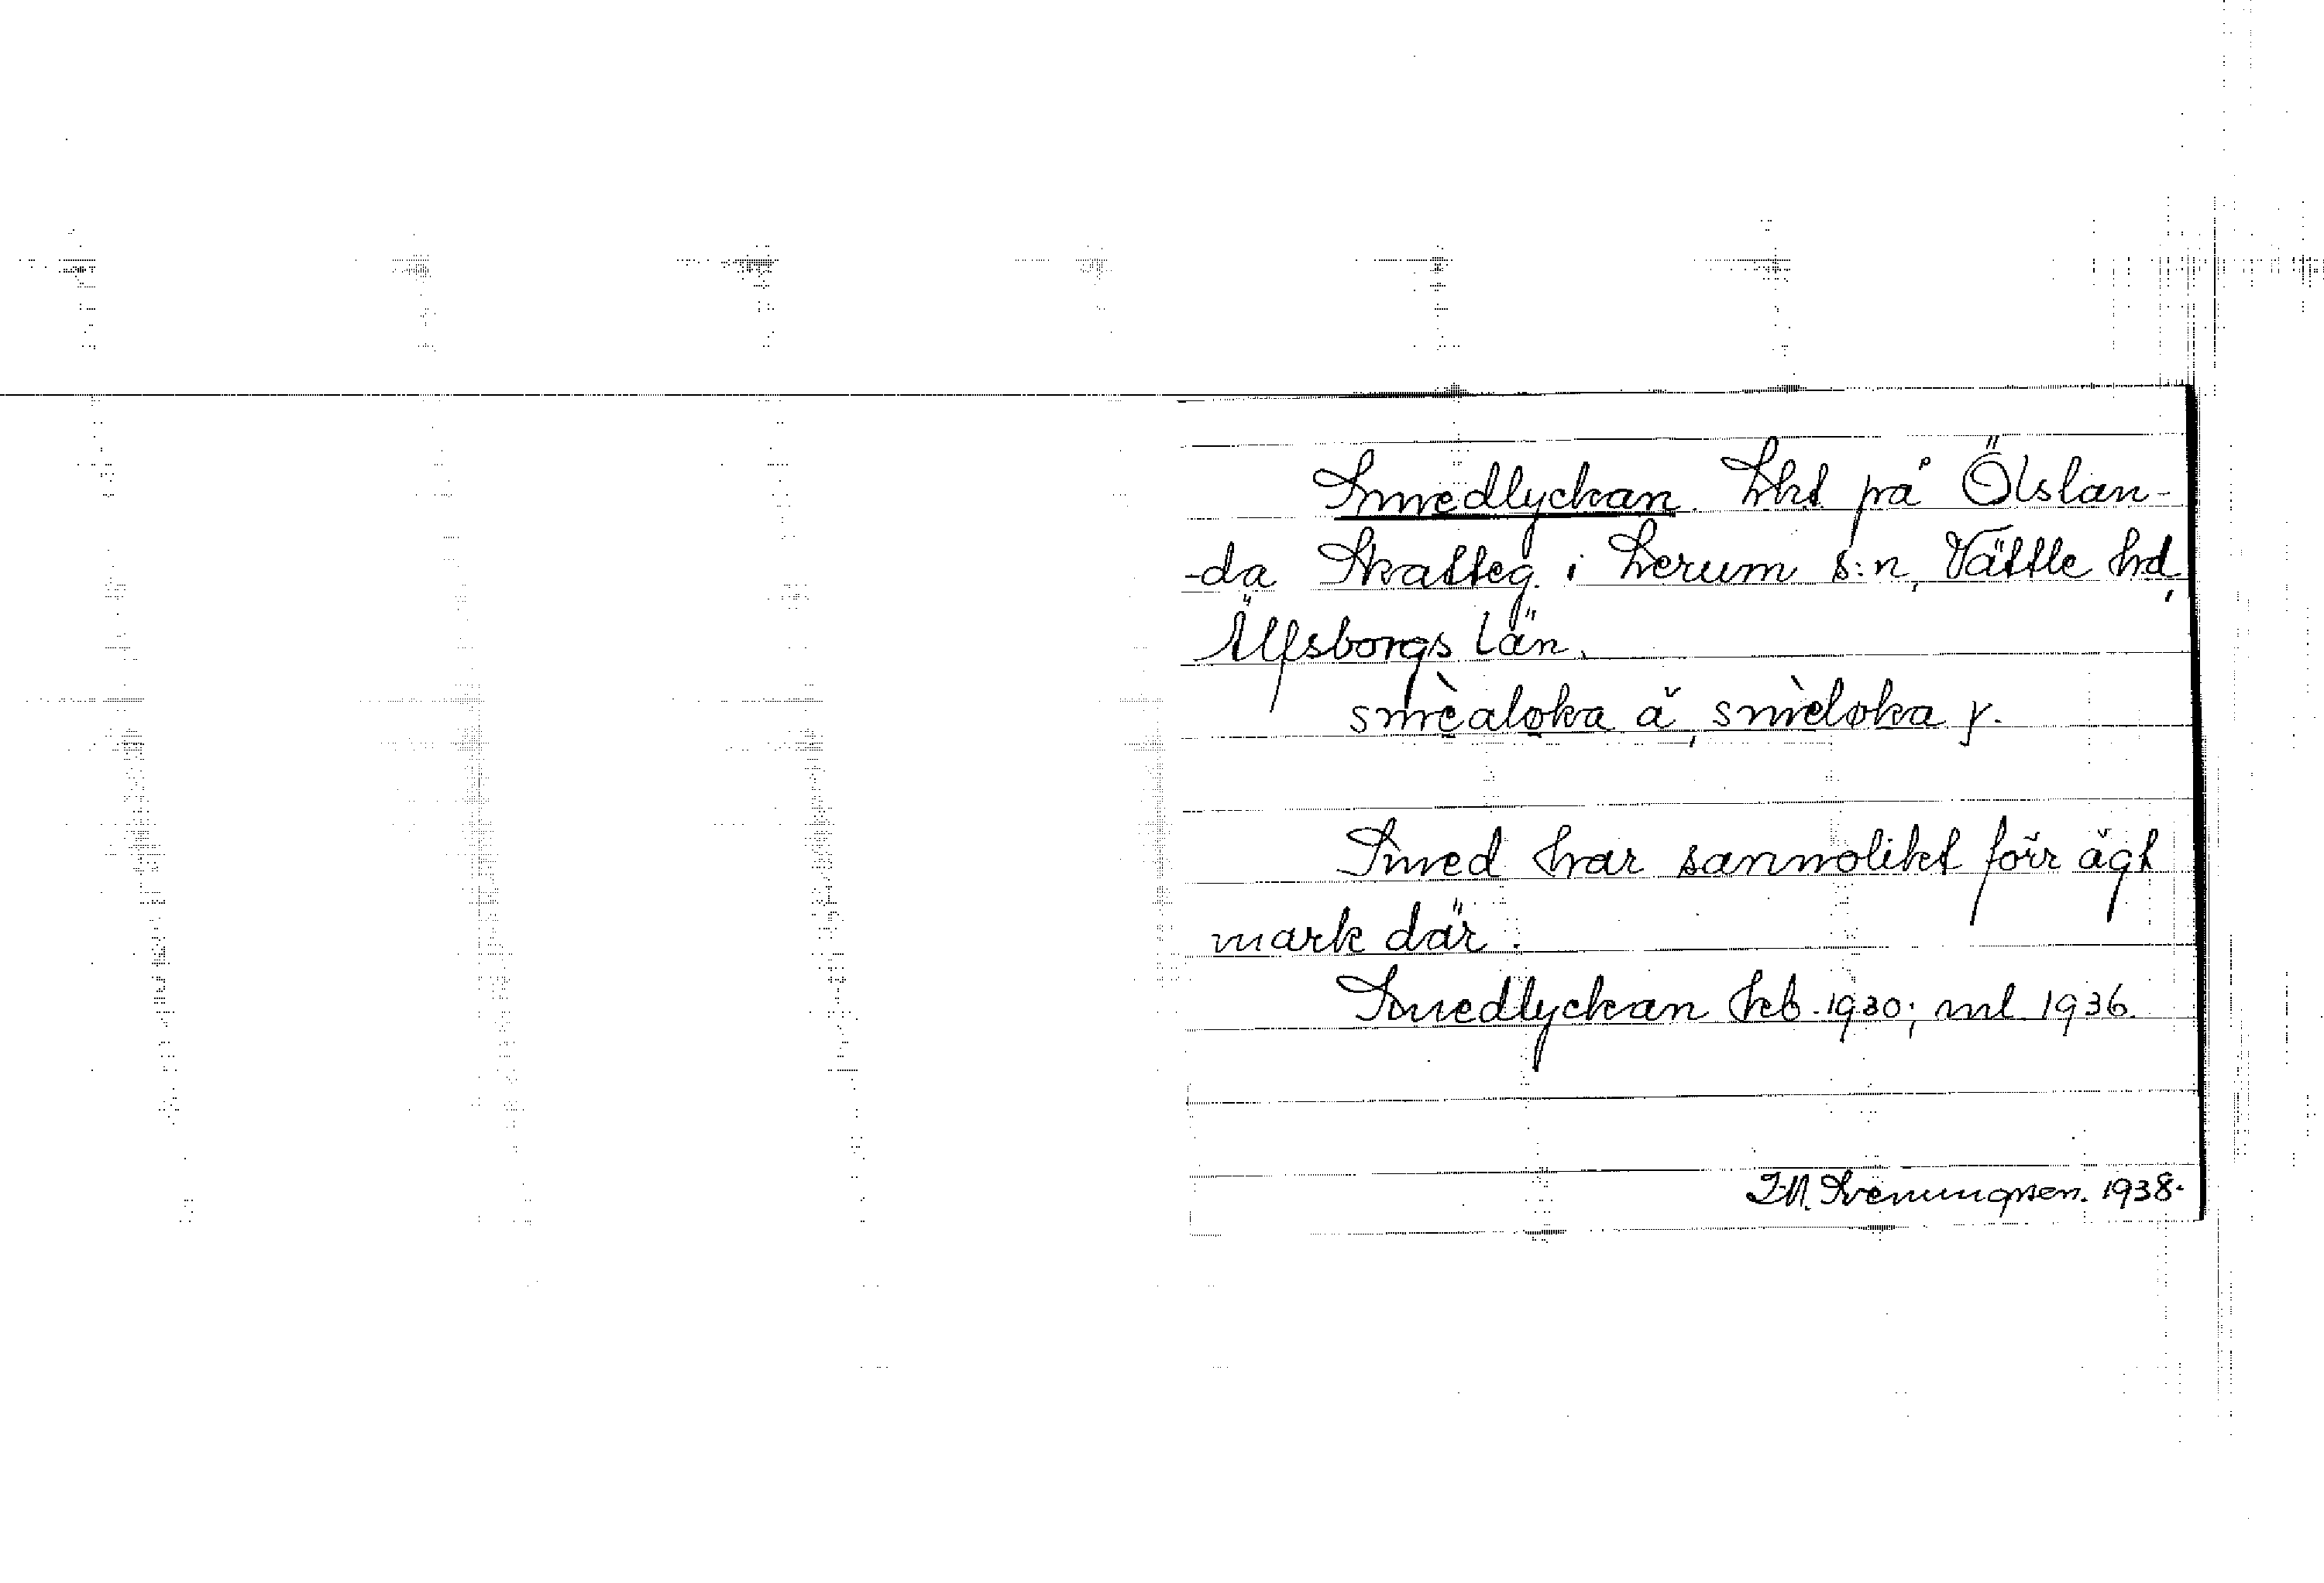 Smedlyckan. Lht på Ölslan-
-da Skatteg. i Lerum s:n, Vättle hd,
Älfsborgs län.
smèaloka ä, smèloka y.
Smed har sannolikt förr ägt
mark där.
Smedlyckan hkb. 1930; ml 1936.
Sveningsson. 1938.